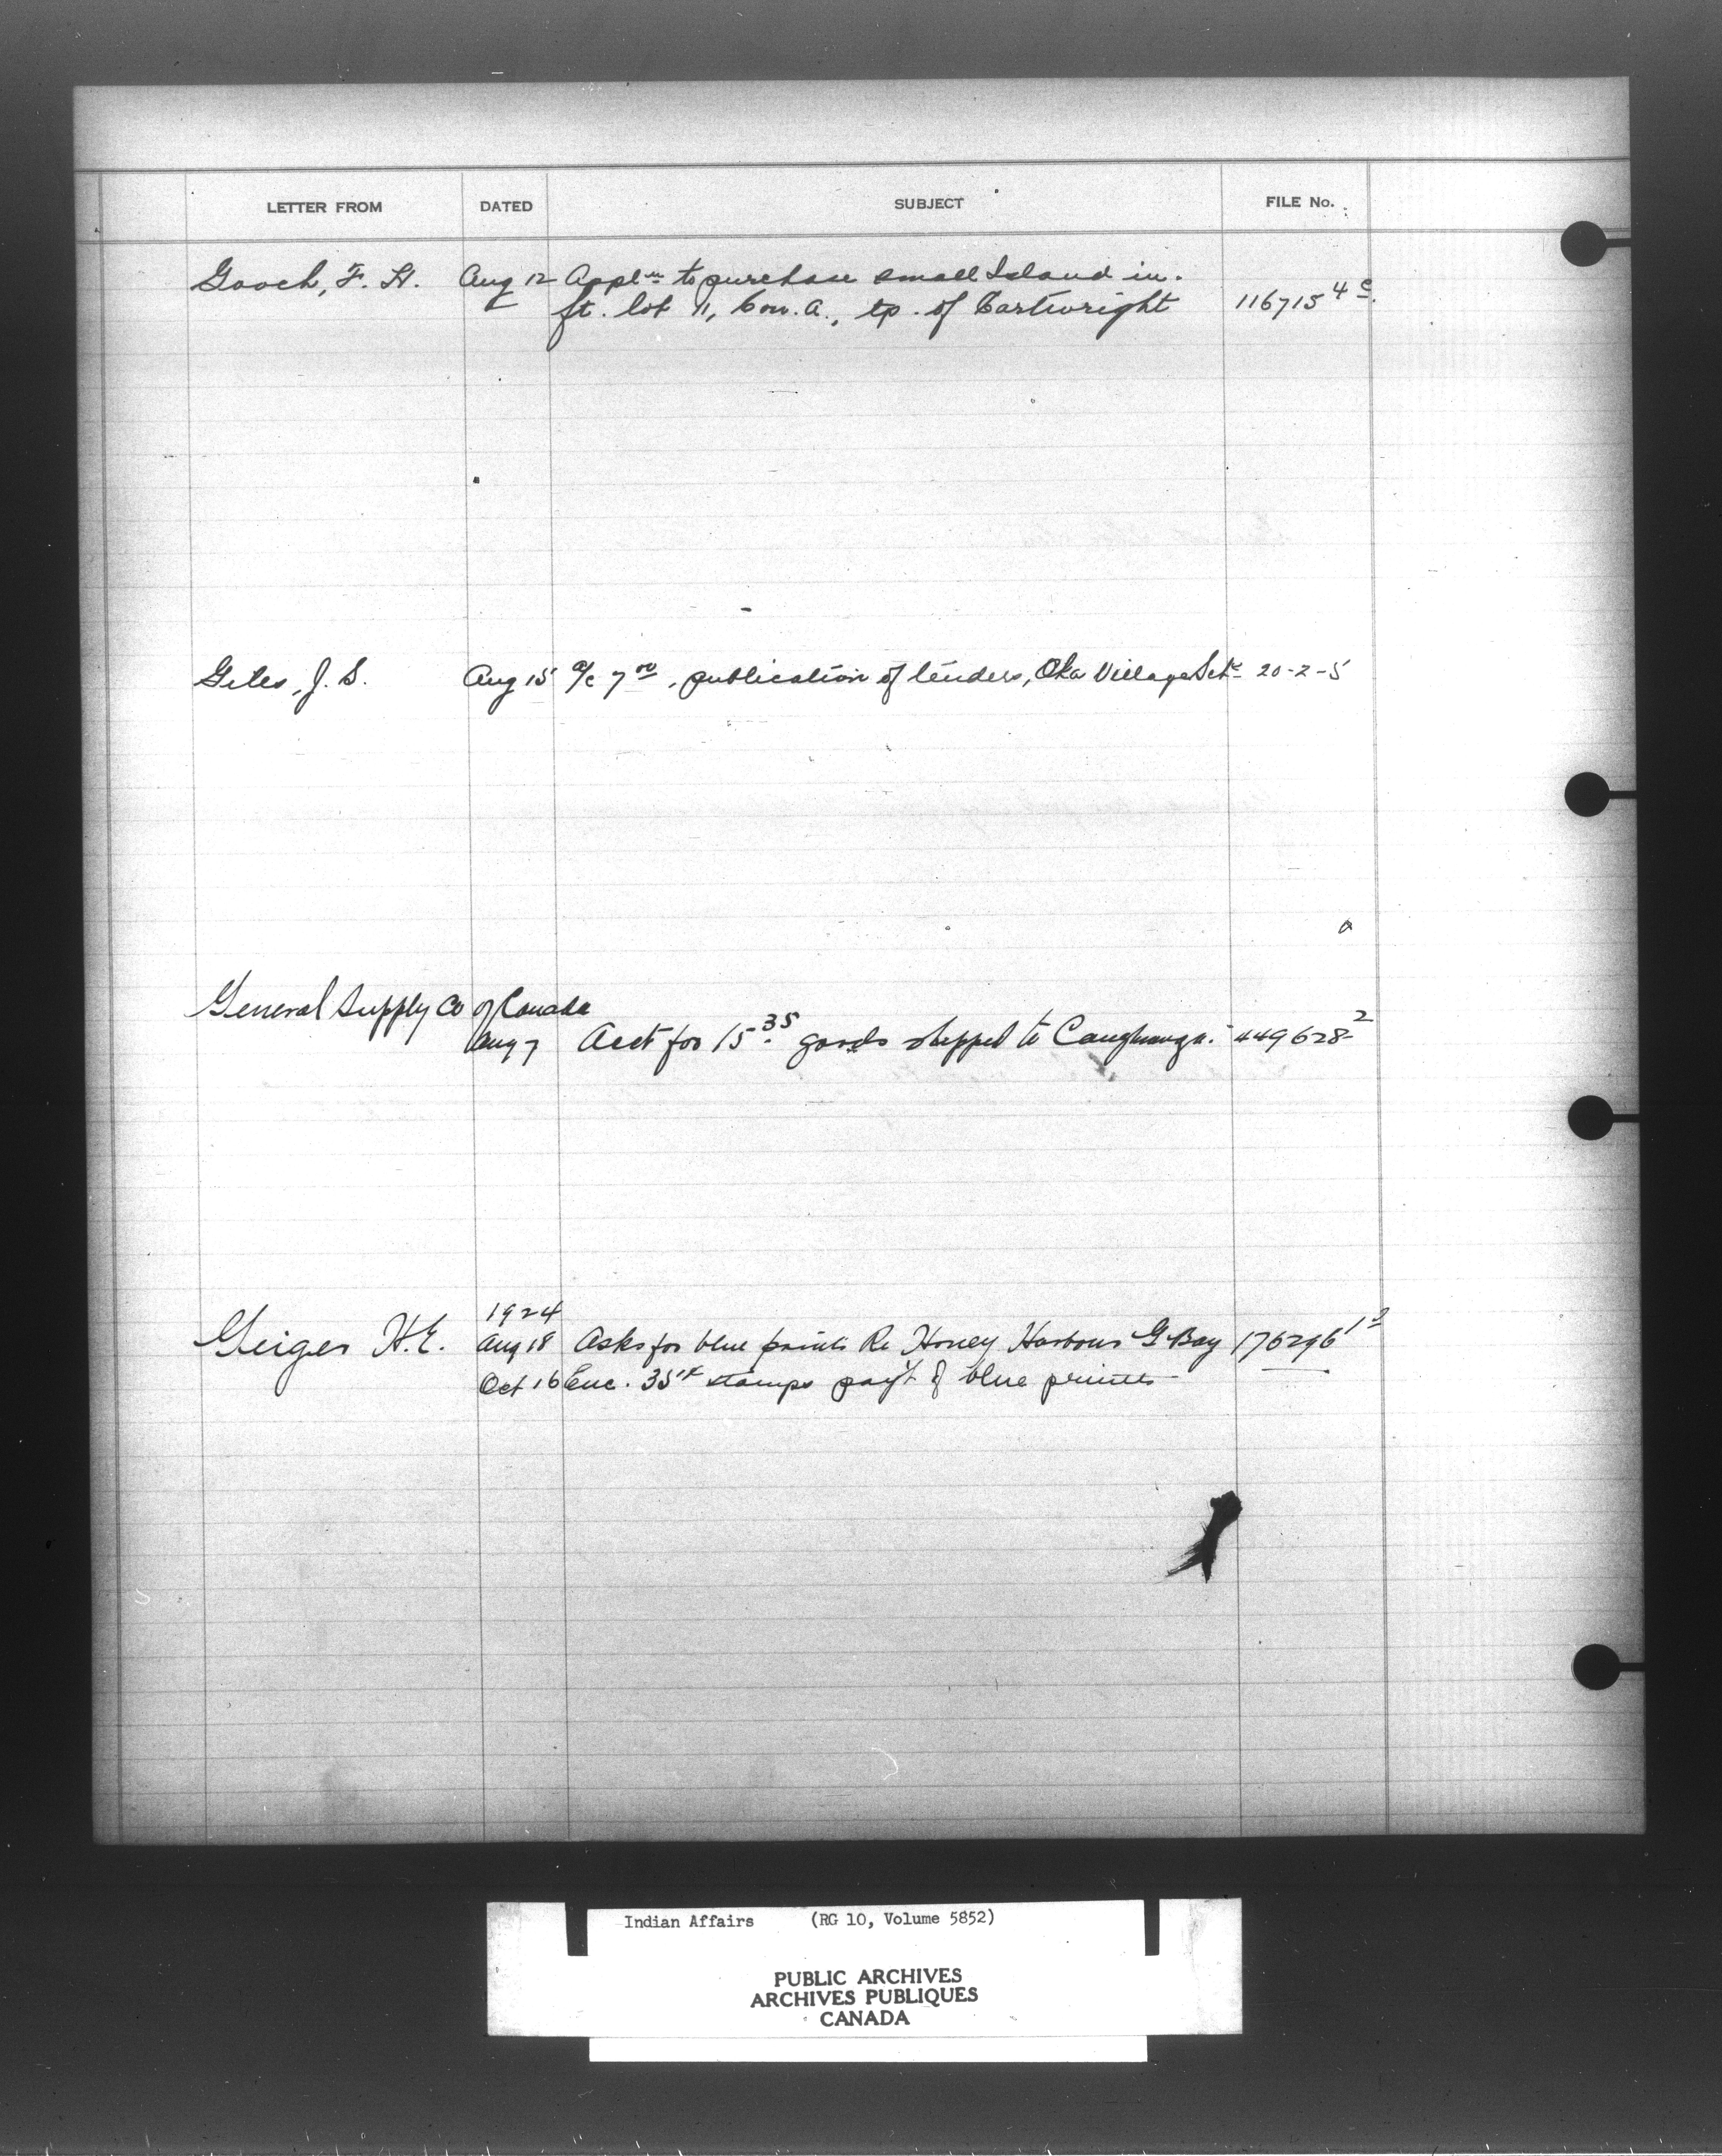 LETTER FROM DATED SUBJECT FILE No.
Gooch, F. H. Aug 12 Appl'n to purchase small Island in.
ft. lot 11, Con. A., tp. of Cartwright 116715 4c
Giles, J. S. Aug 15 a/c 7.00, publication of tenders, Oka Village Schl 20-2-5
General Supply Co of Canada
Aug 7 Acct for 15.35 goods shipped to Caughnawga. 449628-2
1924
Geiger H.E. Aug 18 Asks for blue prints Re Honey Harbour G Bay 176296
Oct 16 Enc. 35¢ stamps pay't of blue prints
Indian Affairs (RG 10, Volume 5852)
PUBLIC ARCHIVES
ARCHIVES PUBLIQUES
CANADA